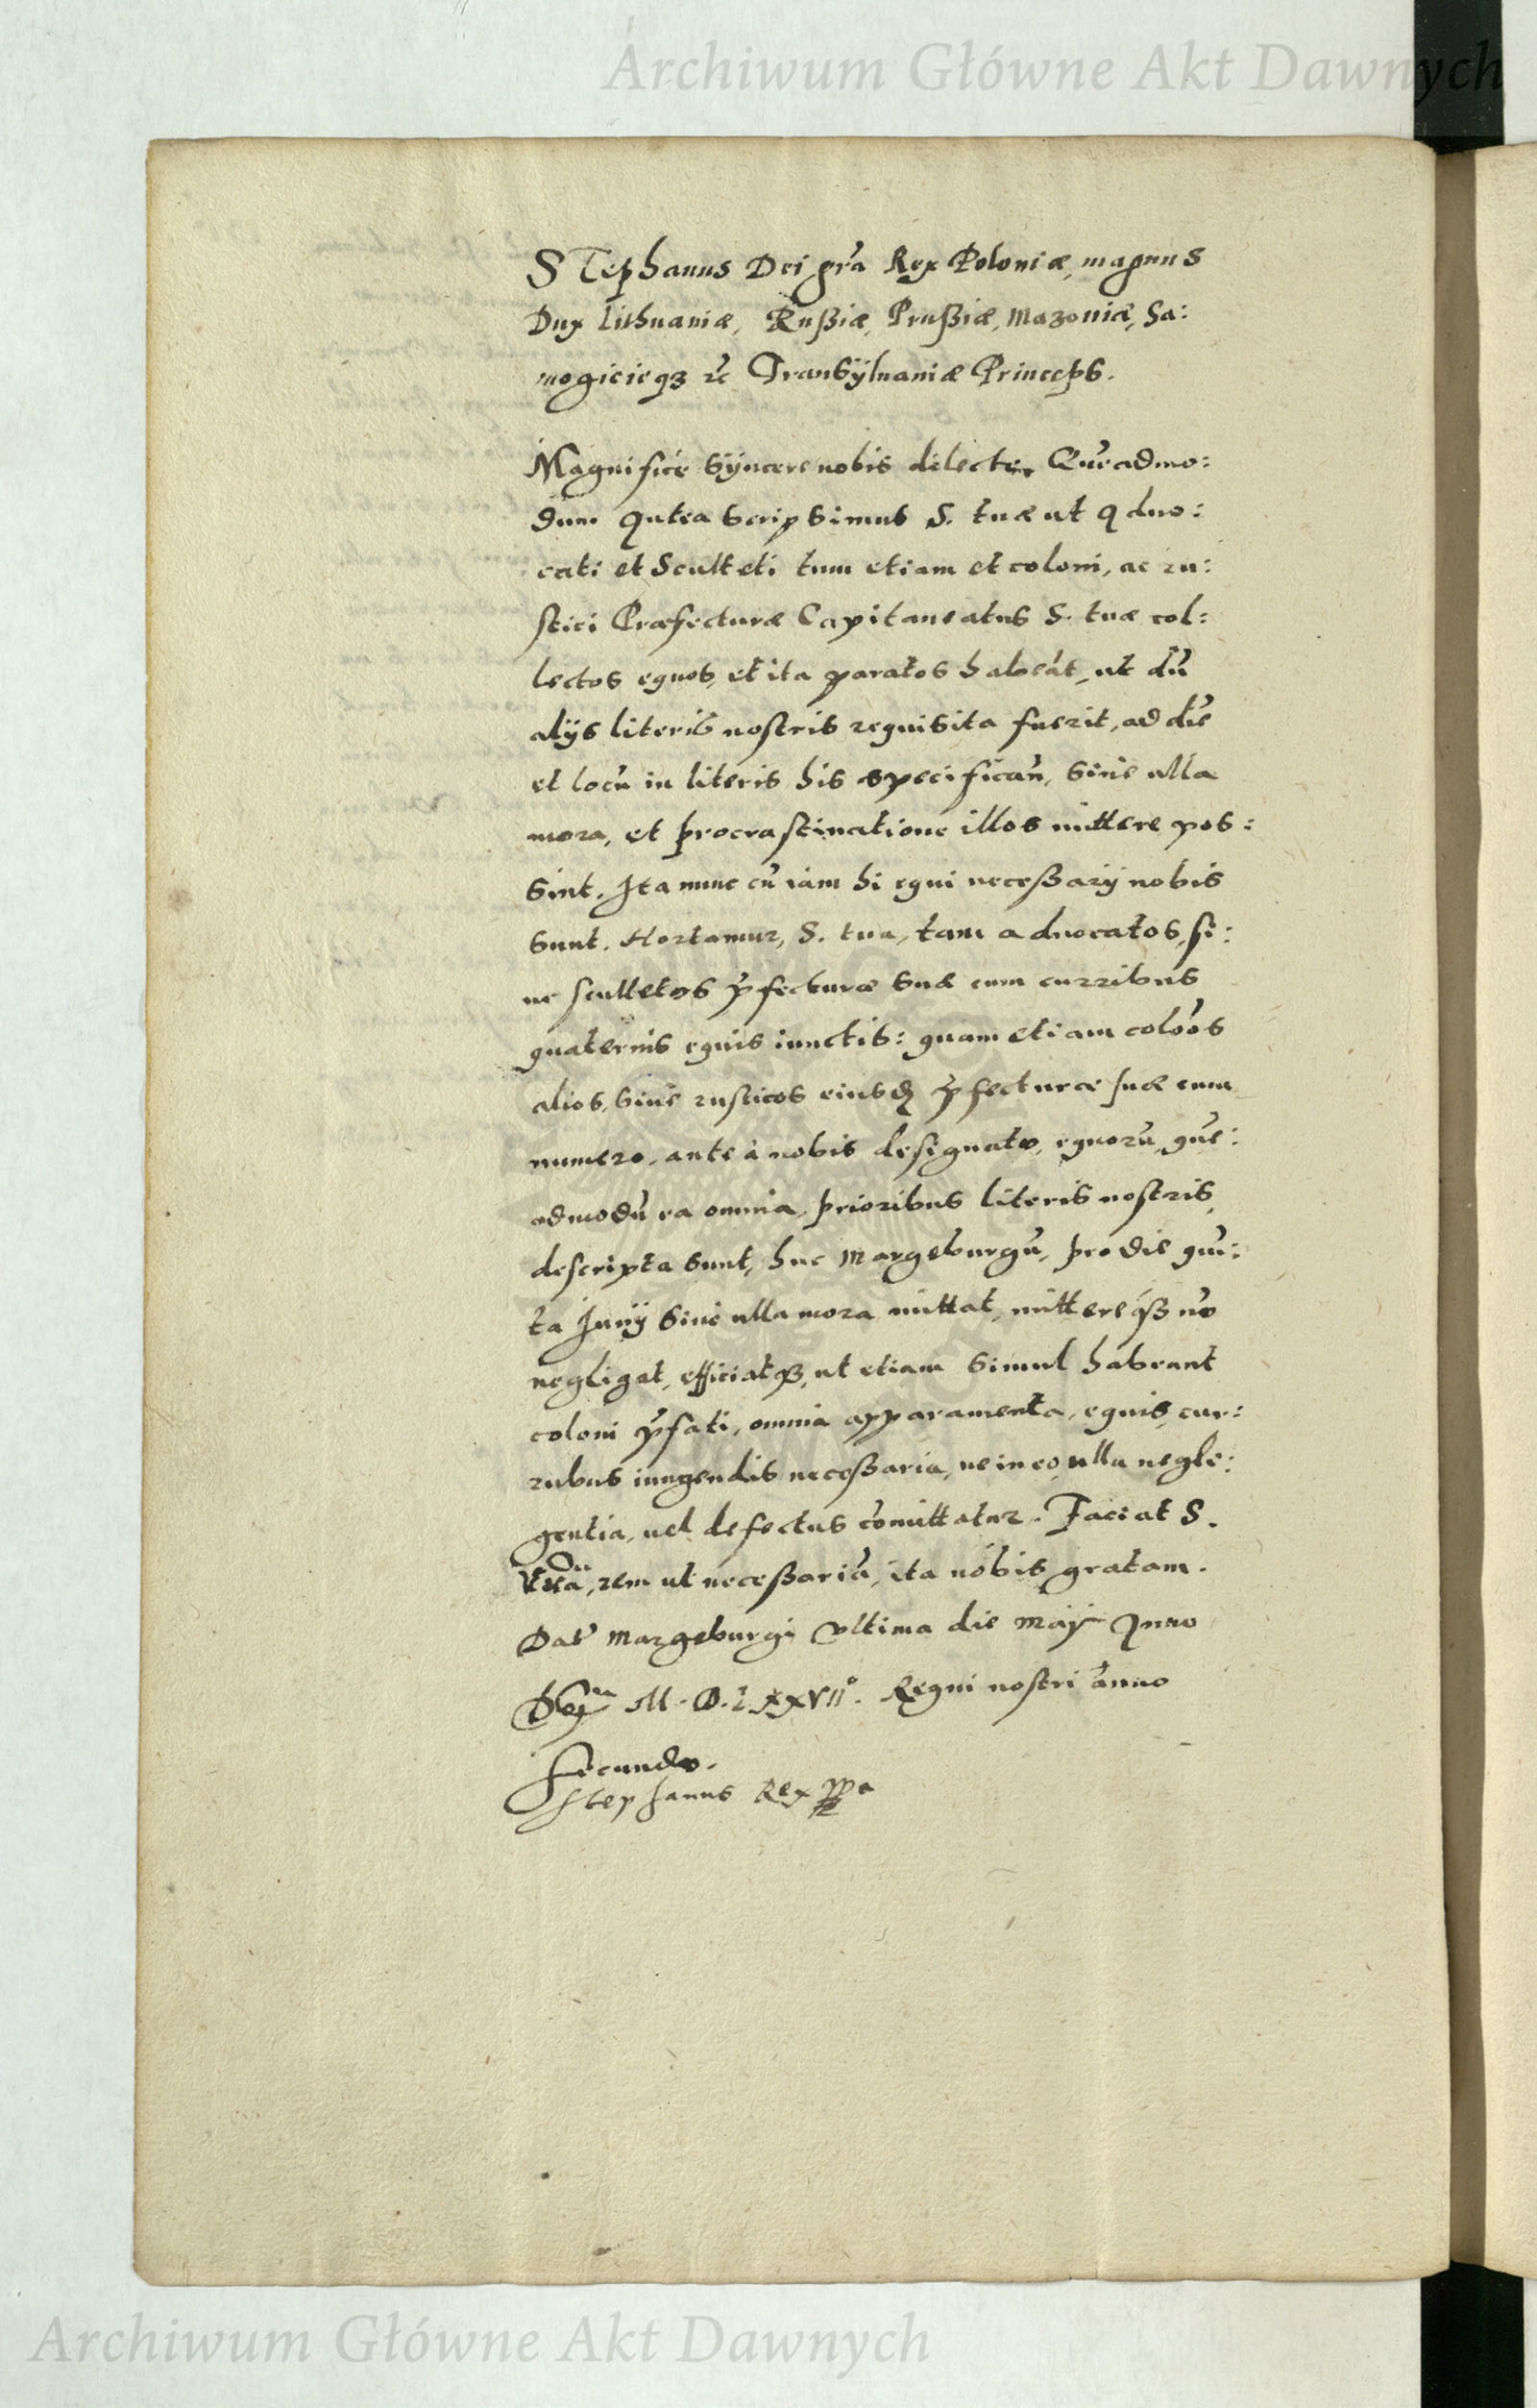 Archiwum Główne Akt Dawnych
STephanus Dei grã Rex Poloniæ, magnus
Dux Lithuaniæ, Rußiæ, Prußiæ, Mazoniæ, Sa:
mogicieqꝫ ꝛc̃ Transÿluaniæ Princeps.
Magnifice sÿncere nobis dilecte. Quẽadmo:
dum Antea scripsimus S. tuæ ut Aduo:
cati et Sculteti tum etiam et coloni, ac ru:
stici Præfecturæ Capitaneatus S. tuæ col:
lectos equos, et ita paratos habeãt, ut dũ
alijs literis nostris requisita fuerit, ad diẽ
et locũ in literis his specificañ, sine ulla
mora, et procrastinatione illos mittere pos:
sint. Ita nunc cũ iam hi equi neceßarij nobis
sunt. Hortamur, S. tua, tam aduocatos, si:
ue scultetos p̃fecturæ suæ cum curribus
quaternis equis iunctis: quam etiam colõos
alios, siue rusticos eiusdꝫ p̃fecturæ suæ cum
numero, ante à nobis designato, equorũ, quẽ:
admodũ ea omnia, prioribus literis nostris,
descripta sunt, huc Margeburgũ, pro die qui:
ta Junij sine ulla mora mittat, mittereqꝫ nõ
negligat, efficiatqꝫ, ut etiam simul habeant
coloni p̃fati, omnia apparamenta, equis, cur:
rubus iungendis neceßaria, ne in eo ulla negle:
gentia, uel defectus cõmittatur. Faciat S.
rem ut neceßariã, ita nobis gratam.
Dat̃ Margeburgi Vltima die Maij Anno
M. D. LXXVII°. Regni nostri anno
secundo.
Stephanus Rex
Archiwum Główne Akt Dawnych